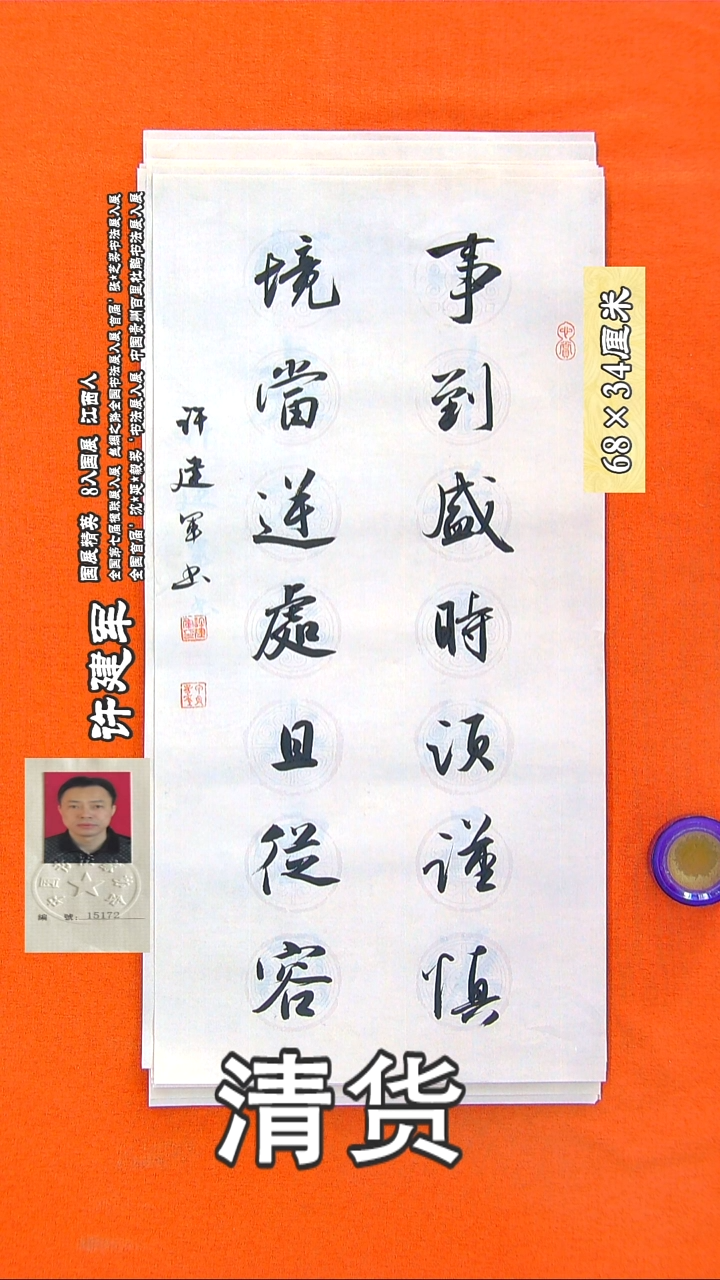 事到盛時須謹慎
境當逆處且從容
许建军书
68×34厘米
许建军
国展精英 8入国展 江西人
全国第七届楹联展入展 丝绸之路全国书法展入展 首届'张*芝奖书法展入展
全国首届'沈*延*毅奖'书法展入展 中国贵州百里杜鹃书法展入展
編 號: 15172
清货